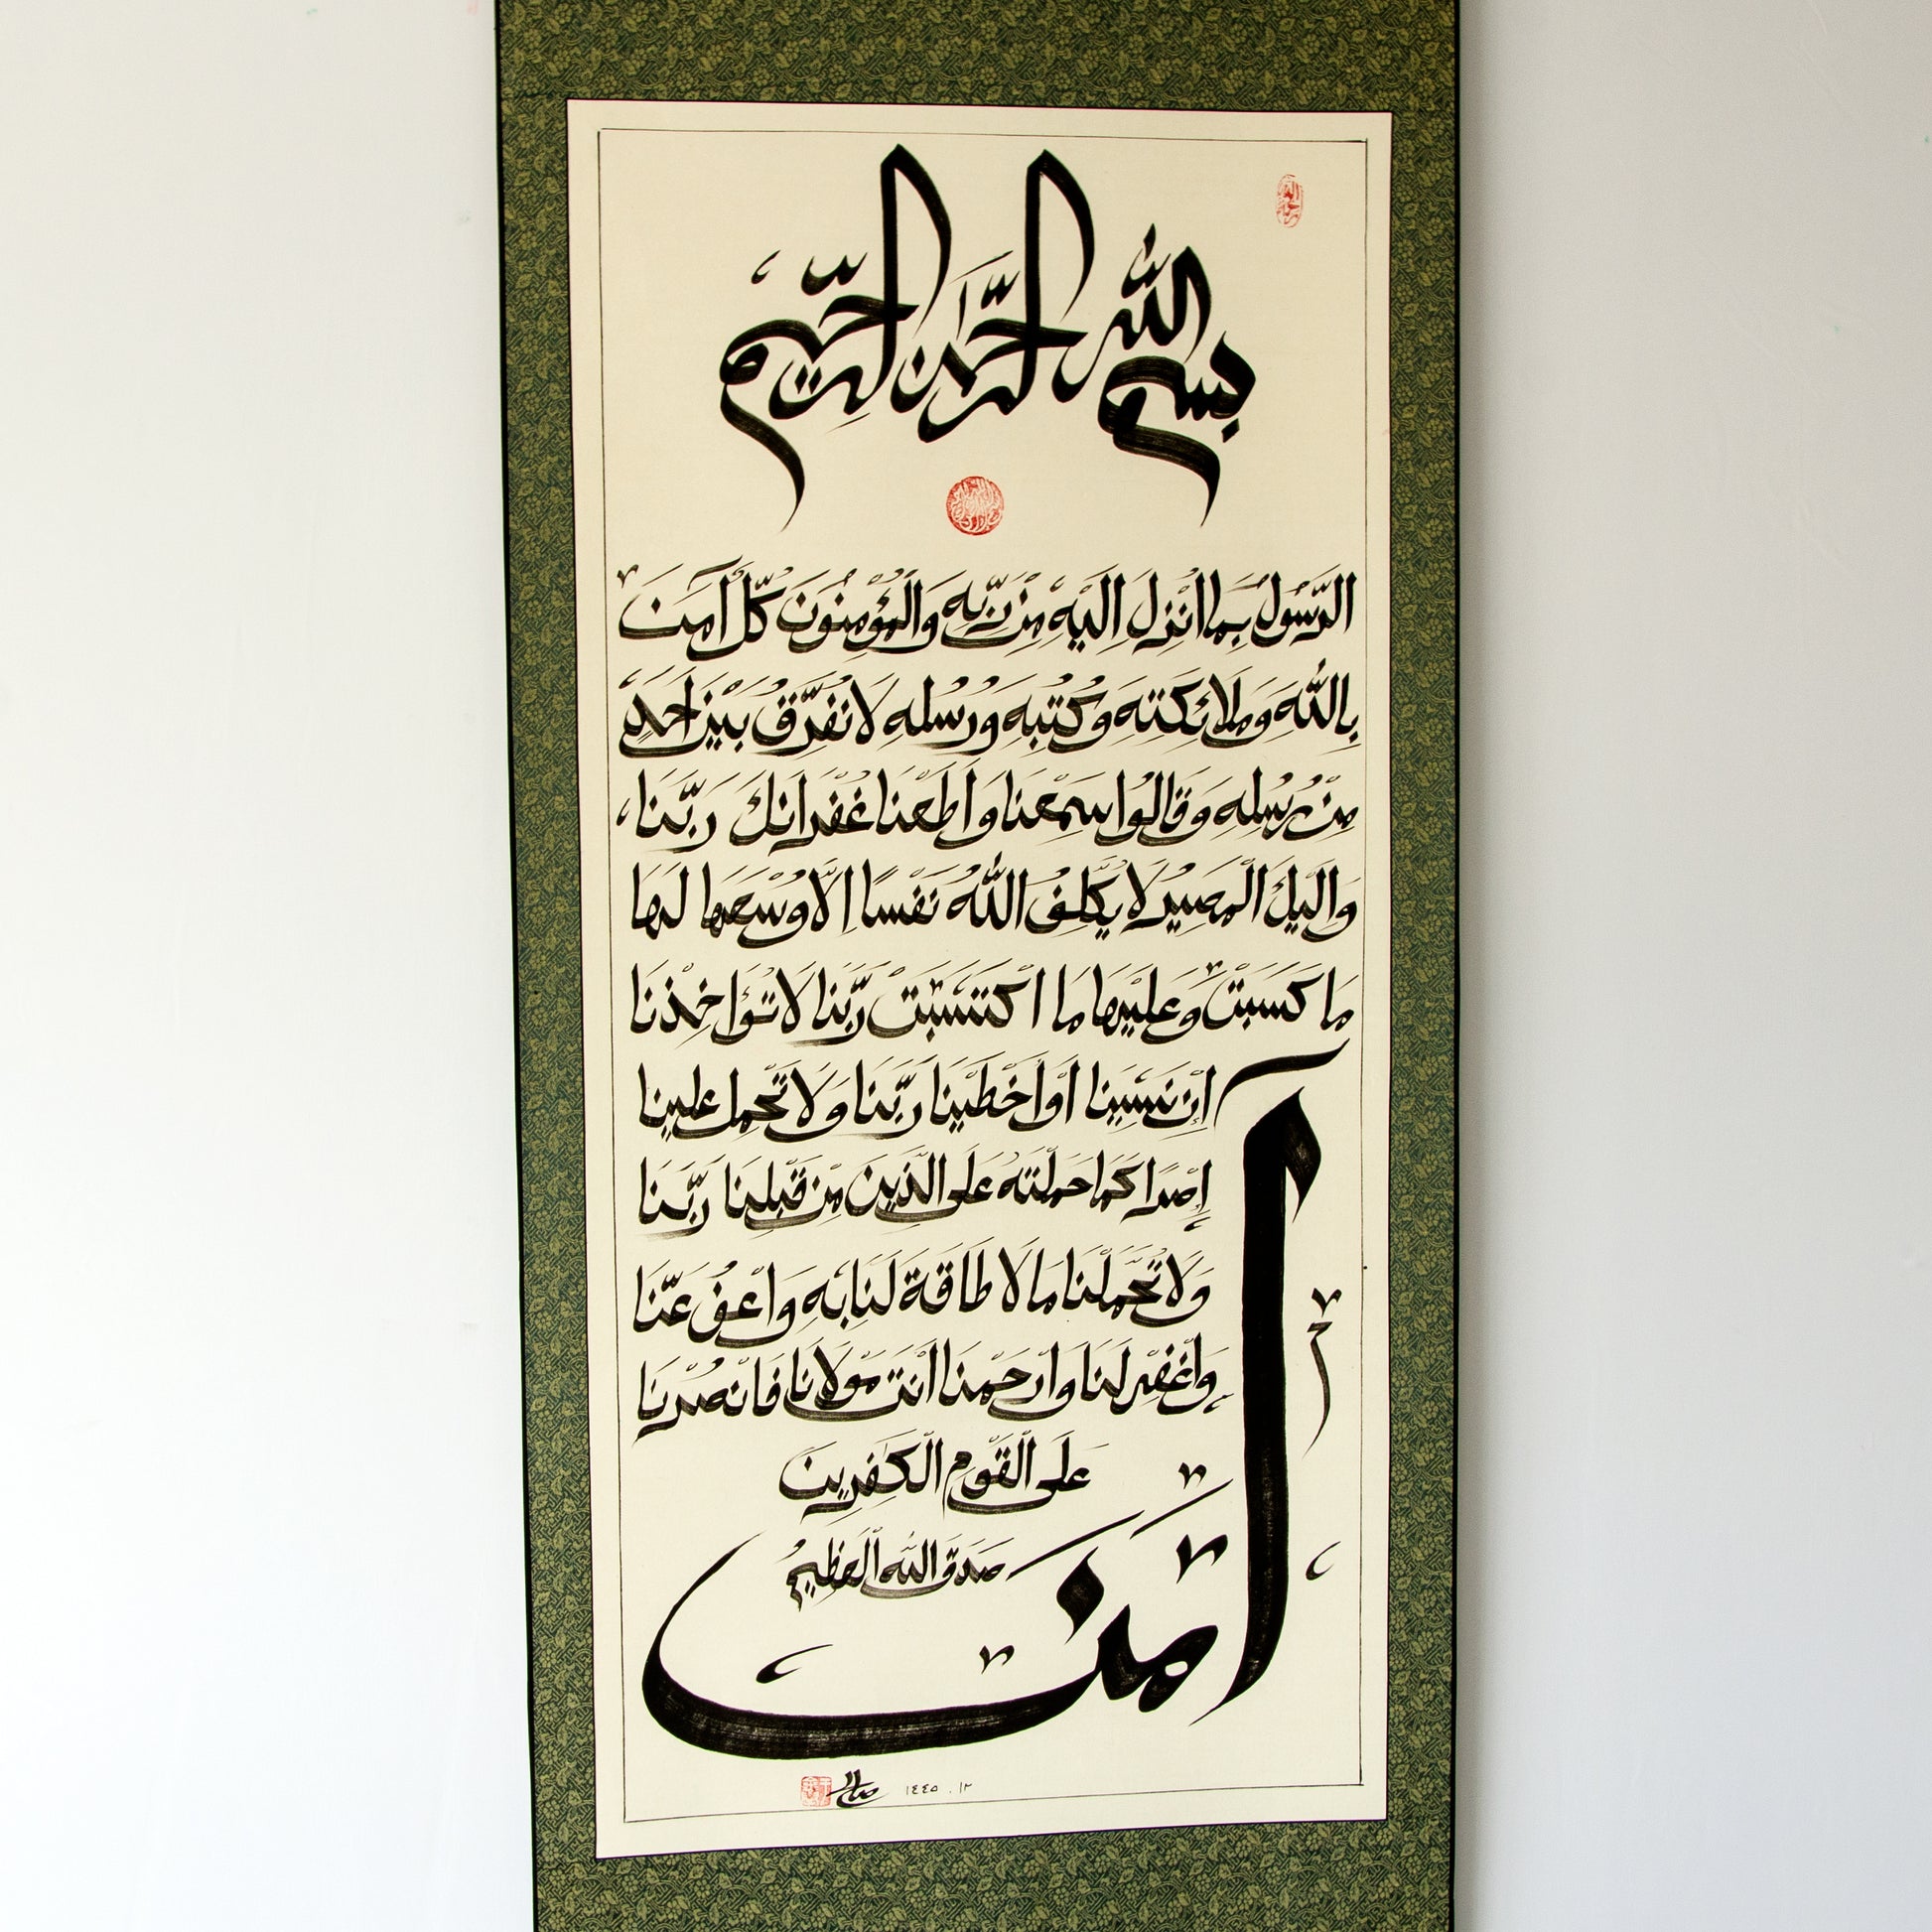 بسم الله الرحمن الرحيم
الرَّسُولُ بِمَا انْزِلَ اِلَيْهِ مِنْ رَبِّهِ وَالْمُؤْمِنُونَ كُلٌّ آمَنَ
بِاللهِ وَمَلائِكَتِهِ وَكُتُبِهِ وَرُسُلِهِ لَا نُفَرِّقُ بَيْنَ اَحَدٍ
مِنْ رُسُلِهِ وَقَالُوا سَمِعْنَا وَاَطَعْنَا غُفْرَانَكَ رَبَّنَا
وَالَيْكَ الْمَصِيرُ لَا يُكَلِّفُ اللهُ نَفْسًا اِلَّا وُسْعَهَا لَهَا
مَا كَسَبَتْ وَعَلَيْهَا مَا اكْتَسَبَتْ رَبَّنَا لَا تُؤَاخِذْنَا
اِنْ نَسِينَا أَوْ أَخْطَيْنَا رَبَّنَا وَلَا تَحْمِلْ عَلَيْنَا
إِصْرًا كَمَا حَمَلْتَهُ عَلَى الَّذِينَ مِنْ قَبْلِنَا رَبَّنَا
وَلَا تُحَمِّلْنَا مَا لَا طَاقَةَ لَنَا بِهِ وَاعْفُ عَنَّا
وَاغْفِرْ لَنَا وَارْحَمْنَا اَنْتَ مَوْلَانَا فَانْصُرْنَا
عَلَى الْقَوْمِ الْكَفِرِينَ
صَدَقَ اللهُ الْعَظِيمُ
آمَنَ
صالح ١٤٤٥ . ١٢